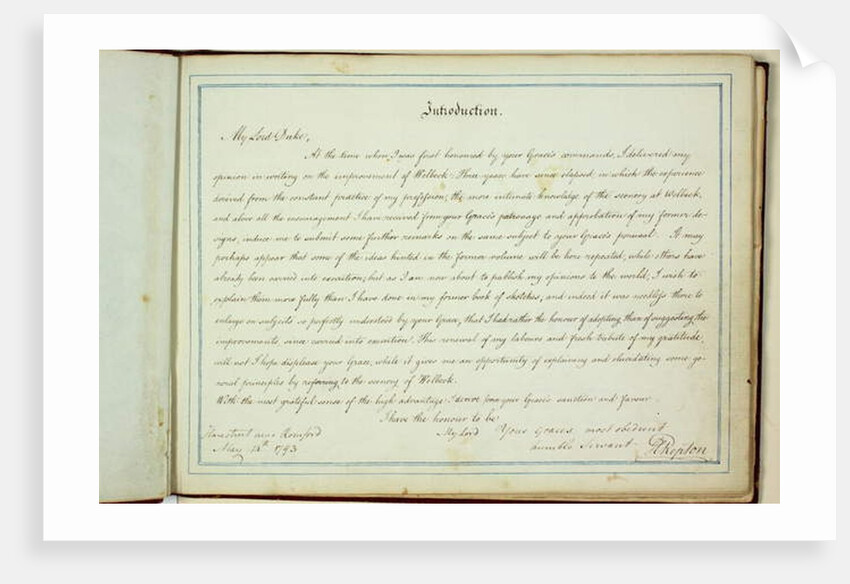 Introduction.
My Lord Duke,
At the time when I was first honoured by your Grace's commands, I delivered my
opinion in writing on the improvement of Welbeck. Three years have since elapsed, in which the experience
derived from the constant practice of my profession; the more intimate knowledge of the scenery at Welbeck,
and above all the encouragement I have received from your Grace's patronage and approbation of my former de-
signs, induce me to submit some further remarks on the same subject to your Grace's perusal. It may
perhaps appear that some of the ideas hinted in the former volume will be here repeated, while others have
already been carried into execution; but as I am now about to publish my opinions to the world, I wish to
explain them more fully than I have done in my former book of sketches; and indeed it was needless there to
enlarge on subjects so perfectly understood by your Grace, that I had rather the honour of adopting than of suggesting the
improvements, since carried into execution. This renewal of my labours and fresh tribute of my gratitude,
will not I hope displease your Grace, while it gives me an opportunity of explaining and elucidating some ge-
neral principles by referring to the scenery of Welbeck.
With the most grateful sense of the high advantage I derive from your Grace's sanction and favour
I have the honour to be
My Lord Your Graces most obedient
humble Servant
H Repton
Harestreet near Romford
May 14th 1793